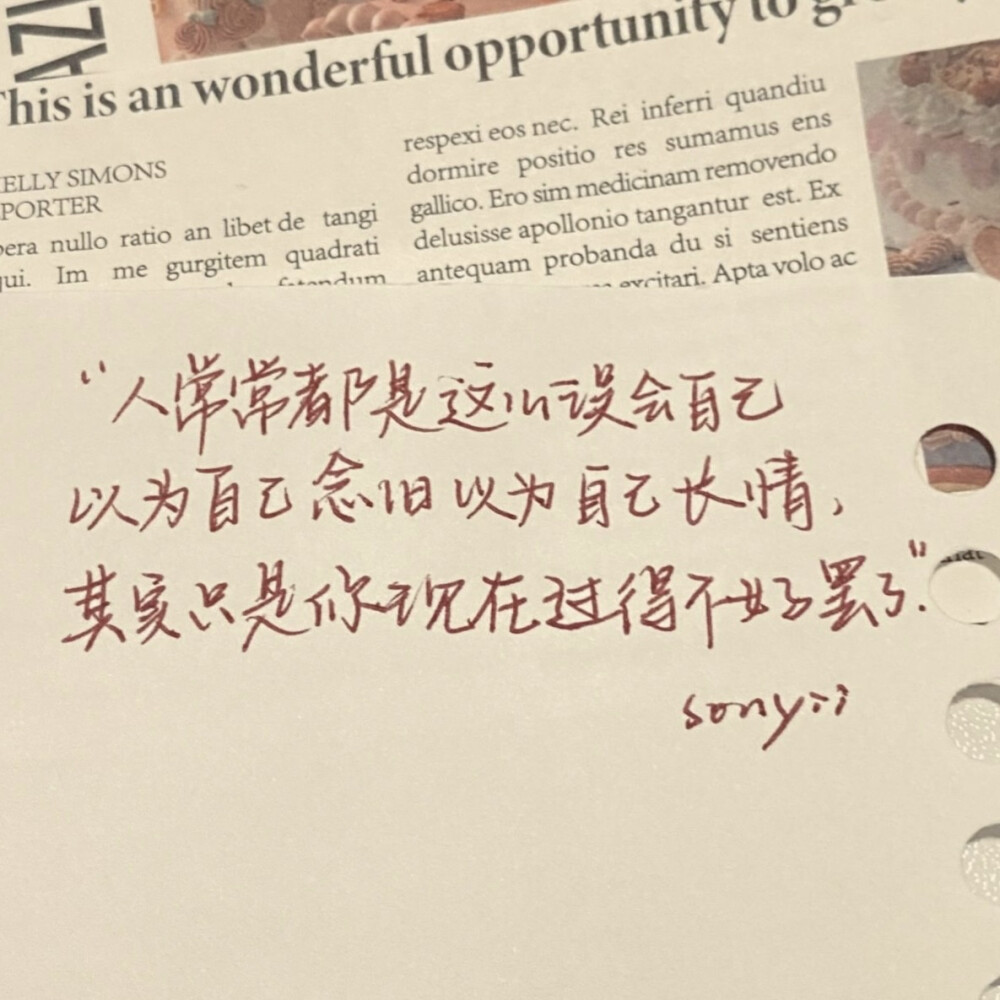 AZI
This is an wonderful opportunity to
ELLY SIMONS
PORTER
pera nullo ratio an libet de tangi
qui. Im me gurgitem quadrati
respexi eos nec. Rei inferri quandiu
dormire positio res sumamus ens
gallico. Ero sim medicinam removendo
delusisse apollonio tangantur est. Ex
antequam probanda du si sentiens
excitari. Apta volo ac
“人常常都是这么误会自己
以为自己念旧以为自己长情,
其实只是你现在过得不好罢了.”
sonyii